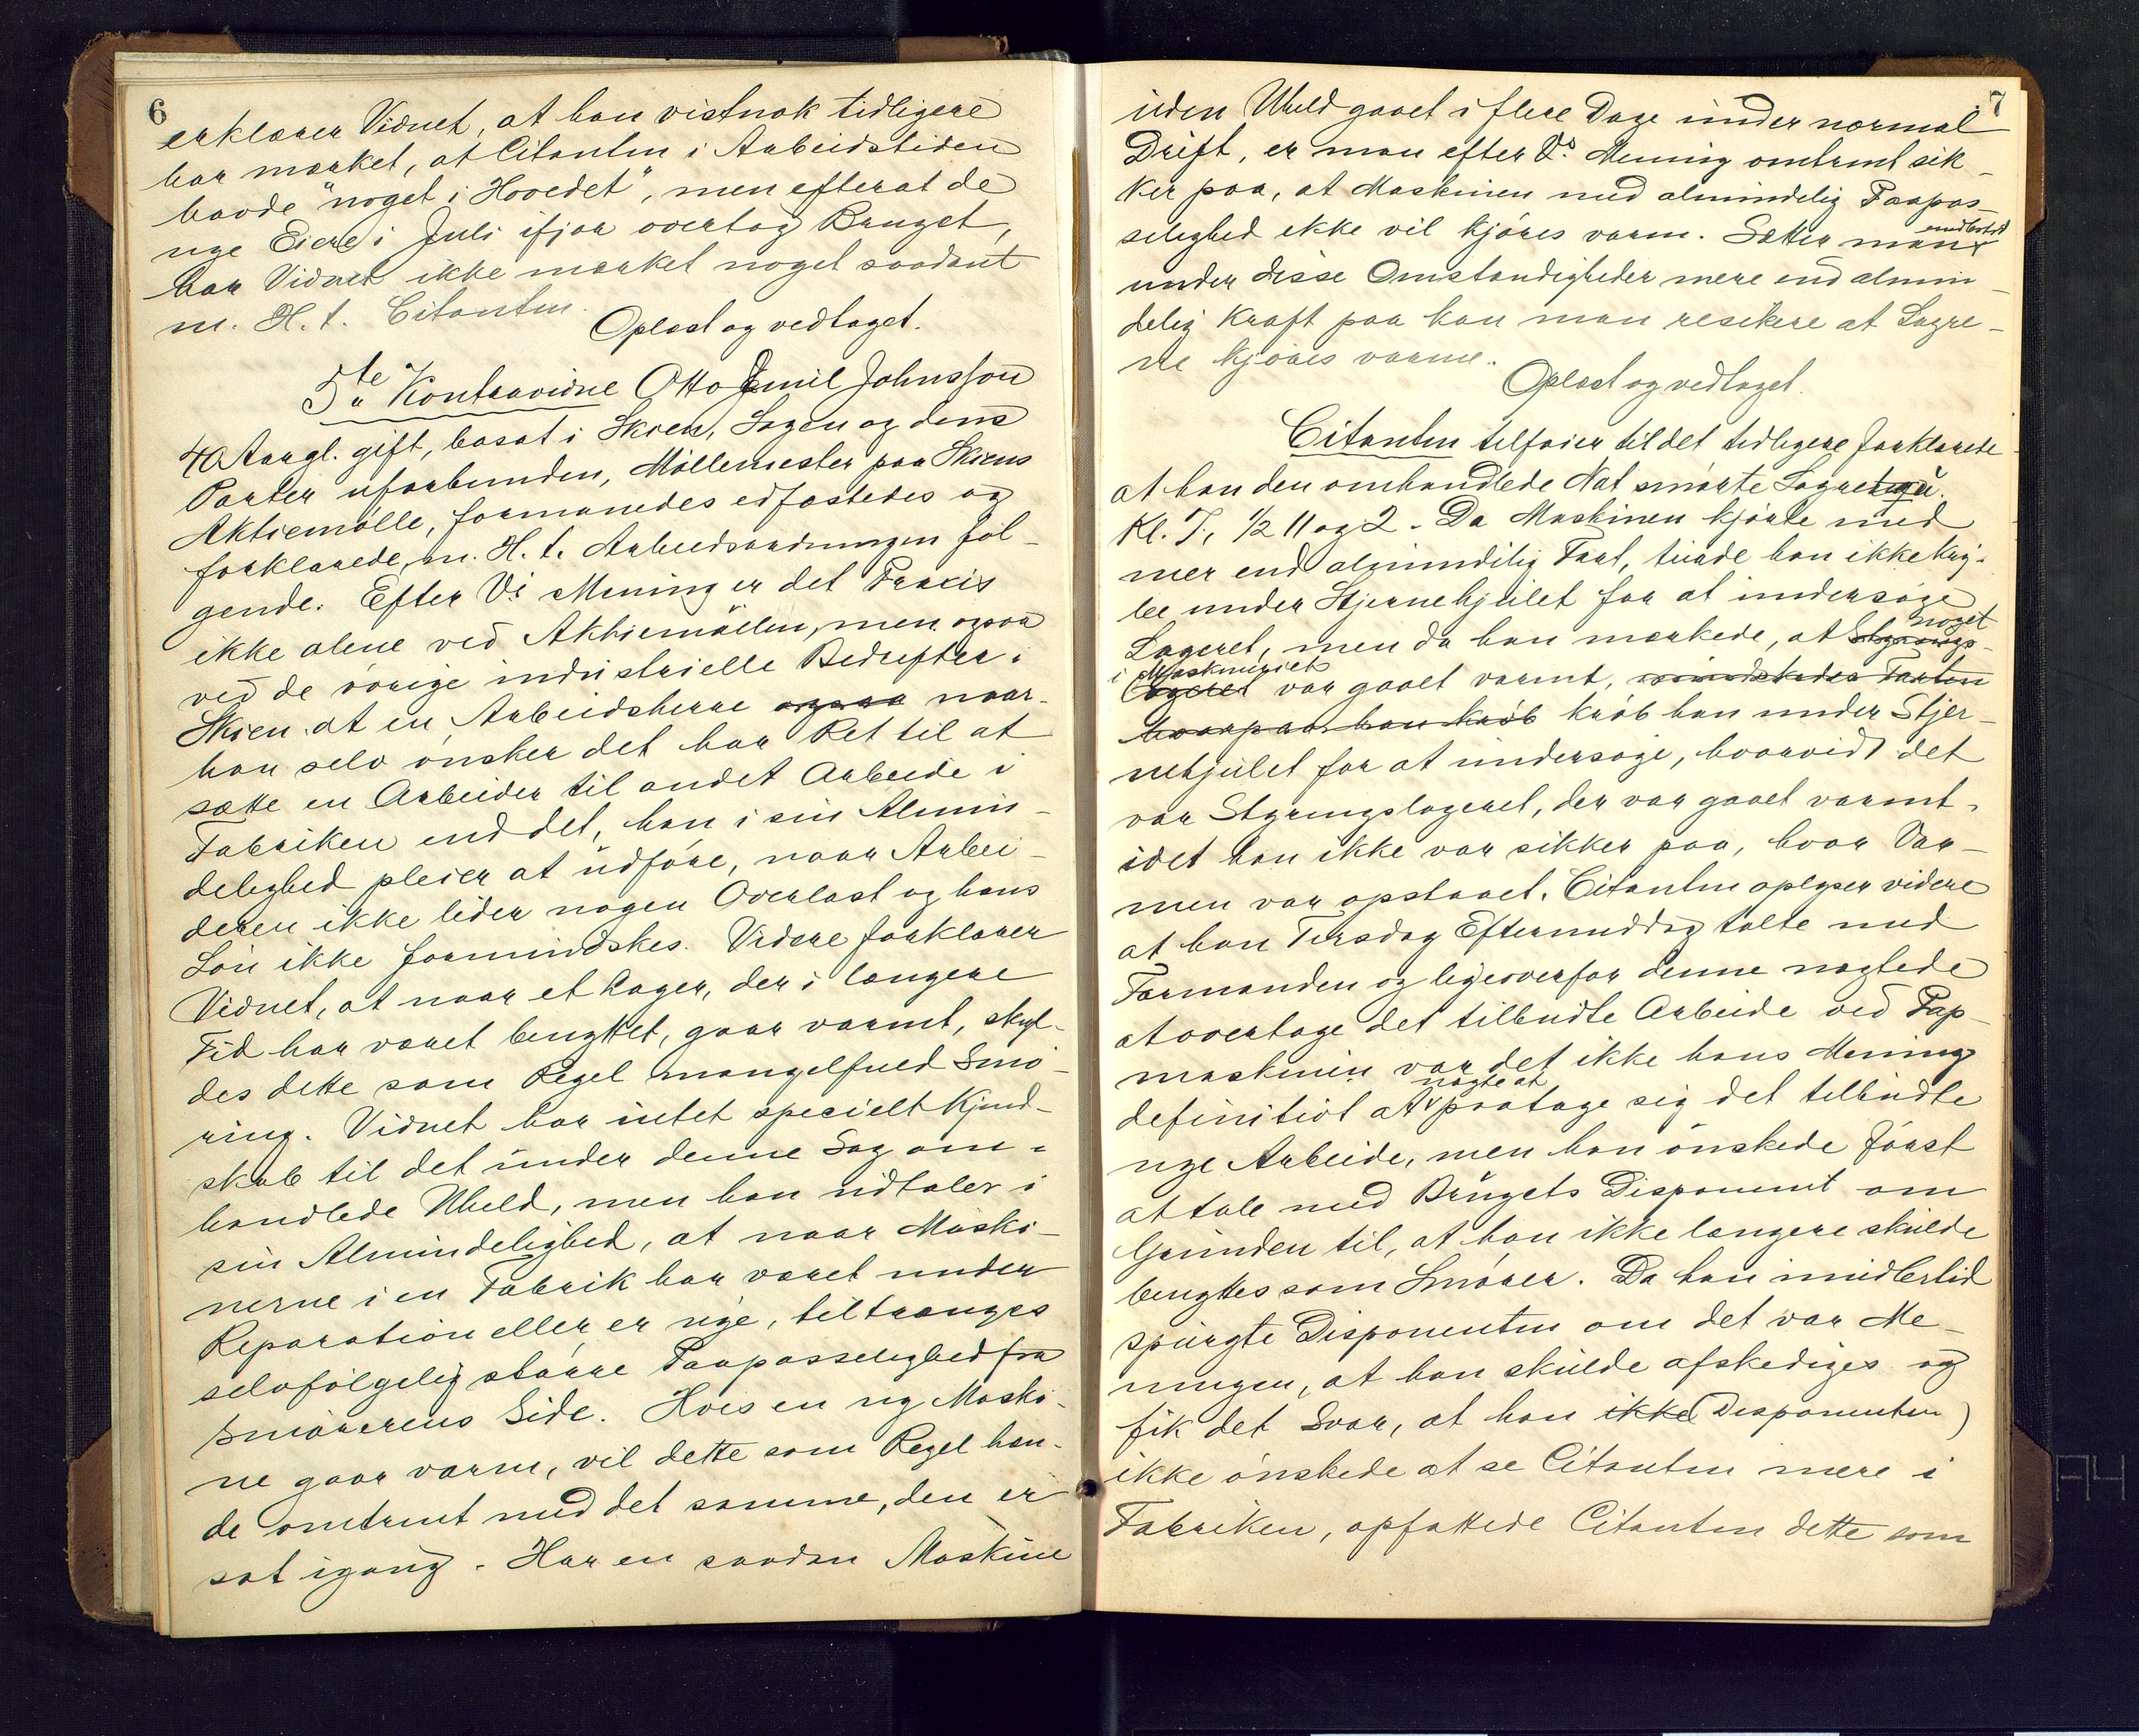 6
erklærer Vidnet, at han vistnok tidligere
har mærket, at Citanten i Arbeidstiden
havde "noget i Hovedet", men efterat de
nye Eiere i Juli ifjor overtog Bruget,
har Vidnet ikke mærket noget saadant
m. H. t. Citanten.
Oplæst og vedtaget.
5te Kontravidne Otto Emil Johnsson
40 Aar gl. gift, bosat i Skien, Sagen og dens
Parter uforbunden, Möllemester paa Skiens
Aktiemölle, formanedes edfæstedes og
forklarede, m. H. t. Arbeidsordningen föl-
gende. Efter Vs Mening er det Praxis
ikke alene ved Aktiemöllen, men ogsaa
ved de övrige industrielle Bedrifter i
Skien at en Arbeidsherre ogsaa naar
han selv önsker det har Ret til at
sætte en Arbeider til andet Arbeide i
Fabriken end det, han i sin Almin-
delighed pleier at udföre, naar Arbei-
deren ikke lider nogen Overlast og hans
Lön ikke formindskes. Videre forklarer
Vidnet, at naar et Lager, der i længere
Tid har været benyttet, gaar varmt, skyl-
des dette som Regel mangelfuld Smö-
ring. Vidnet har intet specielt Kjend-
skab til det under denne Sag om-
handlede Uheld, men han udtaler i
sin Almindelighed, at naar Maski-
nerne i en Fabrik har været under
Reparation eller er nye, tiltrænges
selvfölgelig större Paapasselighed fra
Smörerens Side. Hvis en ny Maski-
ne gaar varm, vil dette som Regel hæn-
de omtrent med det samme, den er
sat igang. Har en saadan Maskine
7
uden Uheld gaaet i flere Dage under normal
Drift, er man efter Vs Mening omtrent sik-
ker paa, at Maskinen med almindelig Paapas-
selighed ikke vil kjöres varm. Sætter man
imidlertid
under disse Omstændigheder mere end almin-
delig Kraft paa kan man resikere at Lagre-
ne kjöres varme.
Oplæst og vedtaget.
Citanten tilföier til det tidligere forklarede
at han den omhandlede Nat smörte Lagret
Kl. 7, 1/2 11 og 2. Da Maskinen kjörte med
mer end almindelig Fart, turde han ikke kry-
be under Stjernehjulet for at undersöge
noget
Lageret, men da han mærkede, at Styrings-
i Maskineriet
Lageret var gaaet varmt, mindskedes Farten
hvorpaa han kröb kröb han under Stjer-
nehjulet for at undersöge, hvorvidt det
var Styringslageret, der var gaaet varmt,
idet han ikke var sikker paa, hvor Var-
men var opstaaet. Citanten oplyser videre
at han Tirsdag Eftermiddag talte med
Formanden og ligeoverfor denne nægtede
at overtage det tilbudte Arbeide ved Pap-
maskinen var det ikke hans Mening
nægte at
definitivt at paatage sig det tilbudte
nye Arbeide, men han önskede först
at tale med Brugets Disponent om
Grunden til, at han ikke længere skulde
benyttes som Smörer. Da han imidlertid
spurgte Disponenten om det var Me-
ningen, at han skulde afskediges og
fik det Svar, at han ikke (Disponenten)
ikke önskede at se Citanten mere i
Fabriken, opfattede Citanten dette som